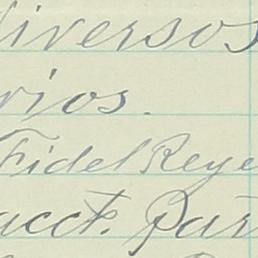 diversos
rios.
Fidel Reye
acct. Par